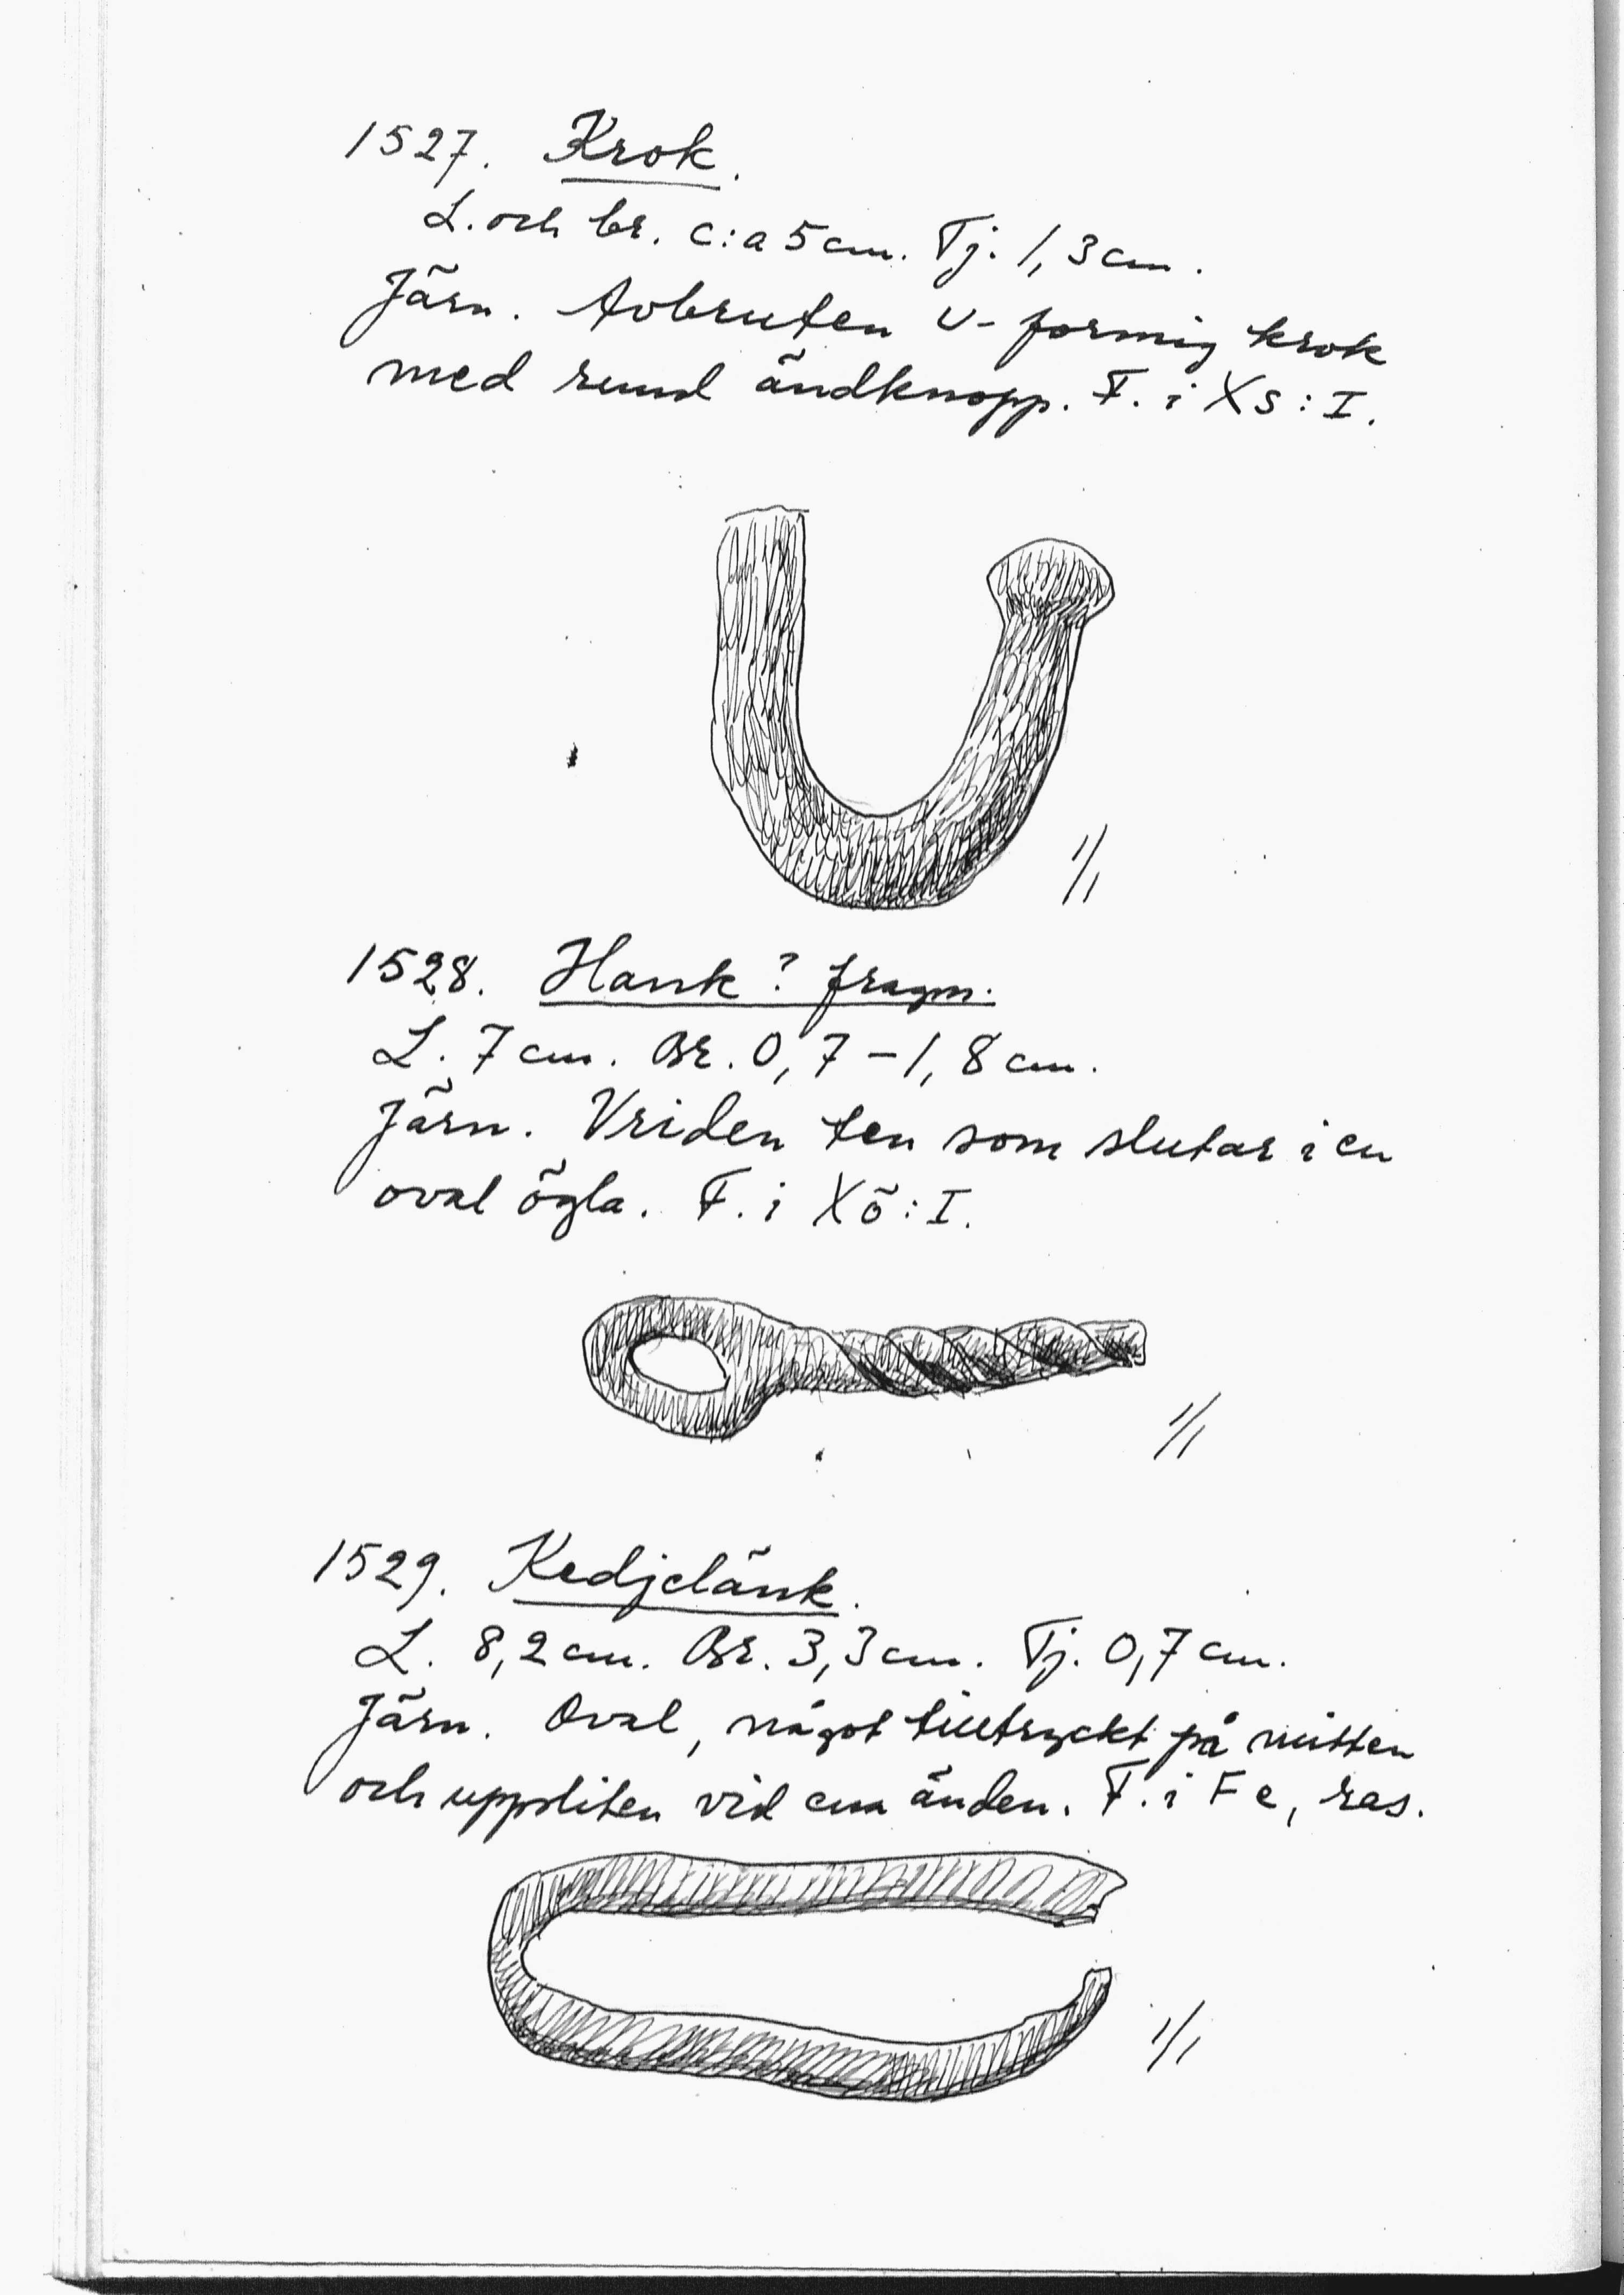 1527. Krok.
L. och br. c:a 5 cm. Tj. 1,3 cm.
Järn. Avbruten U-formig krok
med rund ändknopp. F. i Xs: I.
1/1
1528. Hank? fragm.
L. 7 cm. Br. 0,7 – 1,8 cm.
Järn. Vriden ten som slutar i en
oval ögla. F. i Xö: I.
1/1
1529. Kedjelänk.
L. 8,2 cm. Br. 3,3 cm. Tj. 0,7 cm.
Järn. Oval, något tilltryckt på mitten
och uppsliten vid ena änden. F. i Fe, ras.
1/1